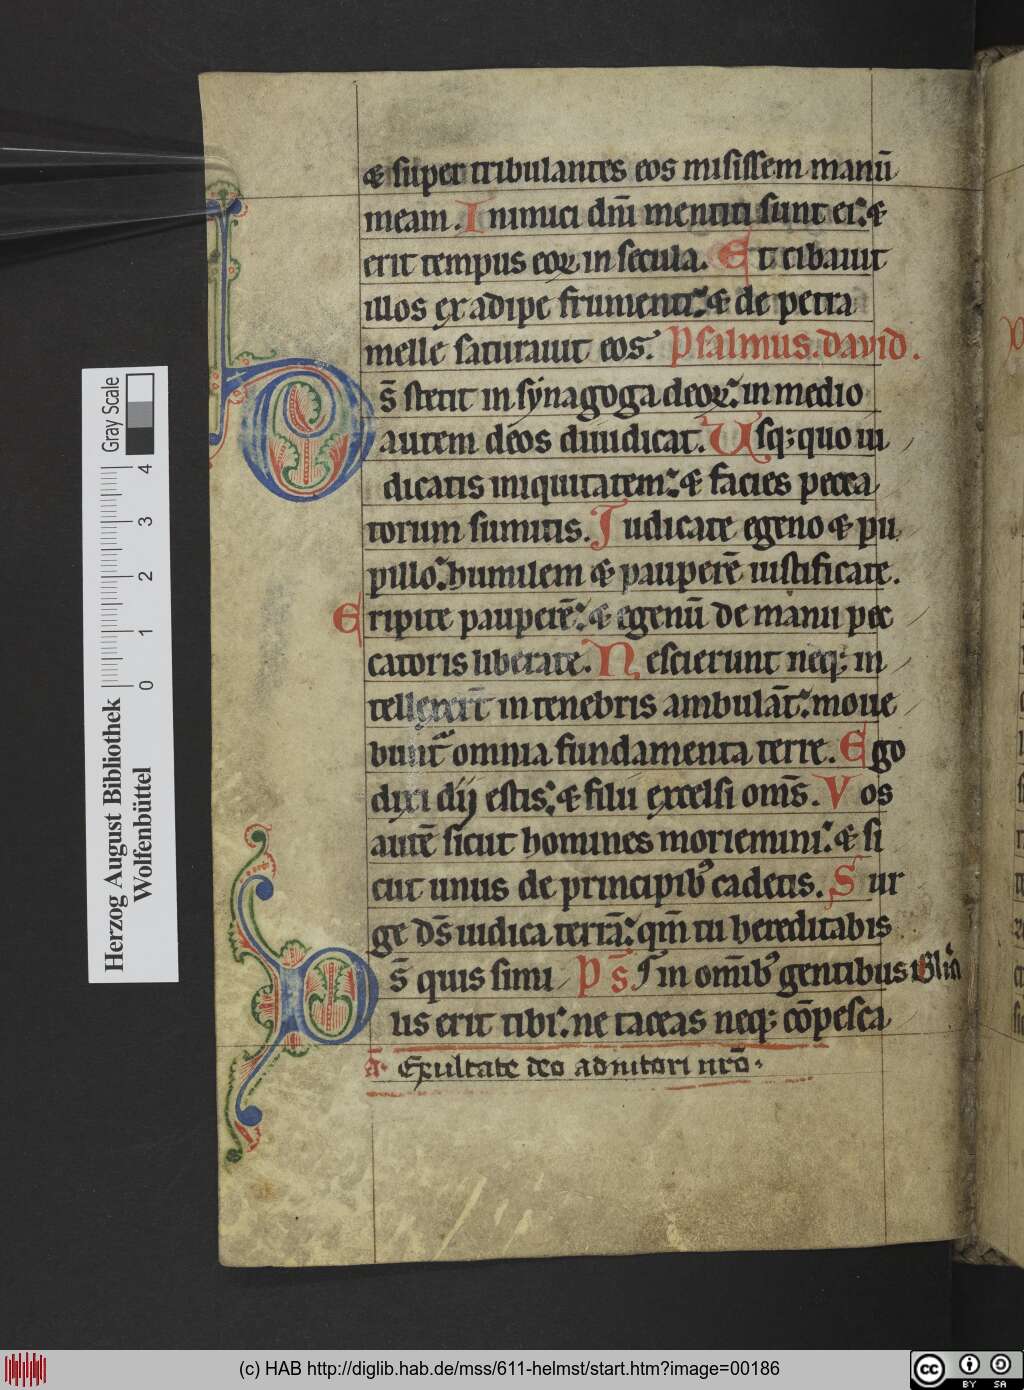 & super tribulantes eos misissem manū
meam. Inimici dn̄i mentiti sunt ei: &
erit tempus eoꝝ in secula. Et cibauit
illos ex adipe frumenti: & de petra
melle saturauit eos. Psalmus. david.
Ds̄ stetit in synagoga deoꝝ: in medio
autem deos diiudicat. Usqꝫ quo iu
dicatis iniquitatem: & facies pecca
torum sumitis. Iudicate egeno & pu
pillo: humilem & pauperē iustificate.
Eripite pauperē: & egenū de manu pec
catoris liberate. Nescierunt neqꝫ in
tellexer̄t in tenebris ambulāt: moue
bunt᷑ omnia fundamenta terre. Ego
dixi dij estis: & filii excelsi oms̄. Vos
autē sicut homines moriemini: & si
cut unus de principibꝰ cadetis. Sur
ge ds̄ iudica terrā: qm̄ tu hereditabis
in om̄ibꝰ gentibus
Ds̄ quis simi Ps̄
lis erit tibi: ne taceas neqꝫ cōpesca
a᷑. Exultate deo adiutori nr̄o.
Gray Scale
0 1 2 3 4
Herzog August Bibliothek
Wolfenbüttel
(c) HAB http://diglib.hab.de/mss/611-helmst/start.htm?image=00186
cc BY SA